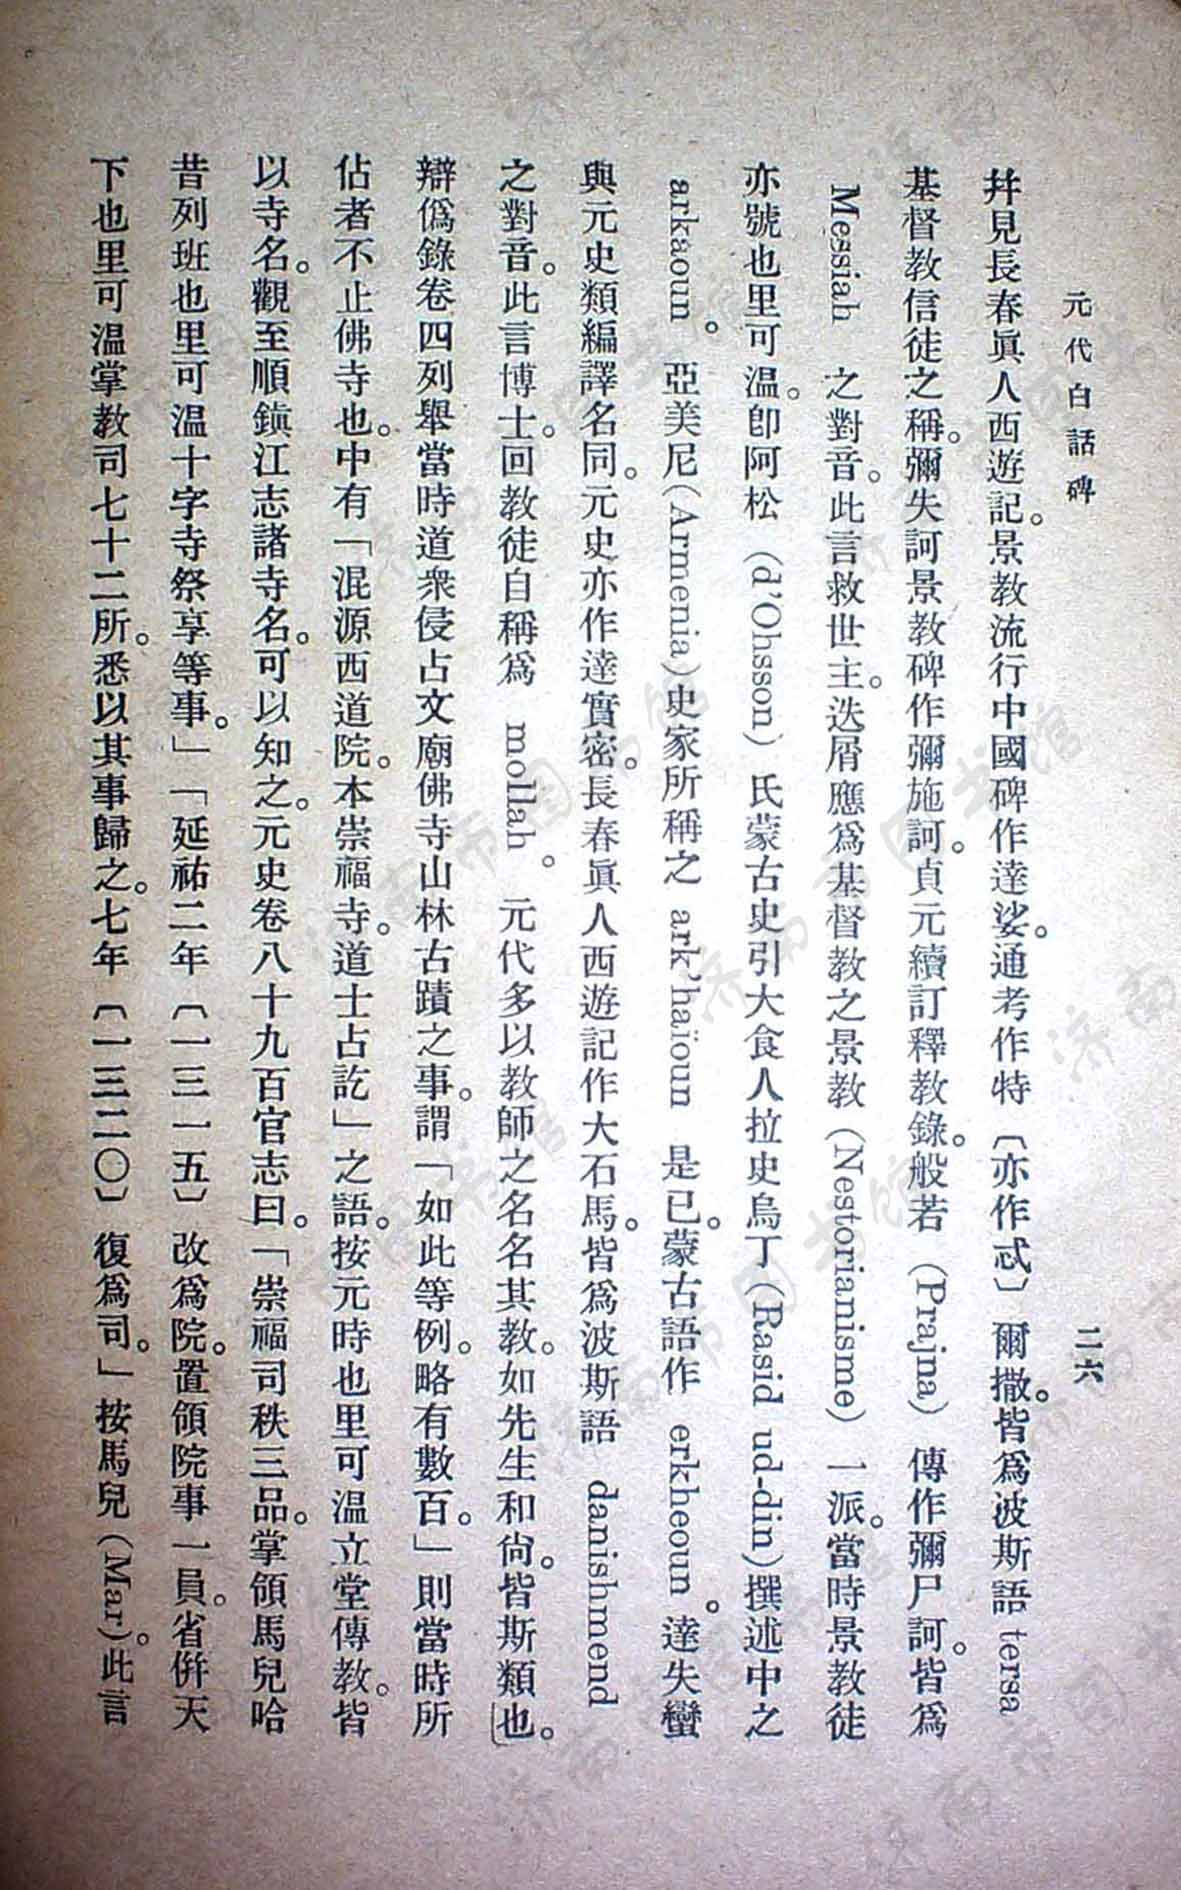 元代白話碑
二六
幷見長春眞人西遊記。景教流行中國碑作達娑。通考作特〔亦作忒〕爾撒。皆爲波斯語 tersa
基督教信徒之稱。彌失訶景教碑作彌施訶。貞元續訂釋教錄。般若（Prajna）傳作彌尸訶。皆爲
Messiah 之對音。此言救世主。迭屑應爲基督教之景教（Nestorianisme）一派。當時景教徒
亦號也里可溫。卽阿松（d'Ohsson）氏蒙古史引大食人拉史烏丁（Rasid ud-din）撰述中之
arkaoun。亞美尼（Armenia）史家所稱之 ark'haïoun 是已。蒙古語作 erkheoun。達失蠻
與元史類編譯名同。元史亦作達實密。長春眞人西遊記作大石馬。皆爲波斯語 danishmend
之對音。此言博士。回教徒自稱爲 mollah。元代多以教師之名名其教。如先生和尙。皆斯類也。
辯僞錄卷四列舉當時道衆侵占文廟佛寺山林古蹟之事。謂「如此等例。略有數百。」則當時所
佔者不止佛寺也。中有「混源西道院。本崇福寺。道士占訖」之語。按元時也里可溫立堂傳教。皆
以寺名。觀至順鎭江志諸寺名。可以知之。元史卷八十九百官志曰。「崇福司秩三品。掌領馬兒哈
昔列班也里可溫十字寺祭享等事。」「延祐二年〔一三一五〕改爲院。置領院事一員。省併天
下也里可溫掌教司七十二所。悉以其事歸之。七年〔一三二〇〕復爲司。」按馬兒（Mar）。此言